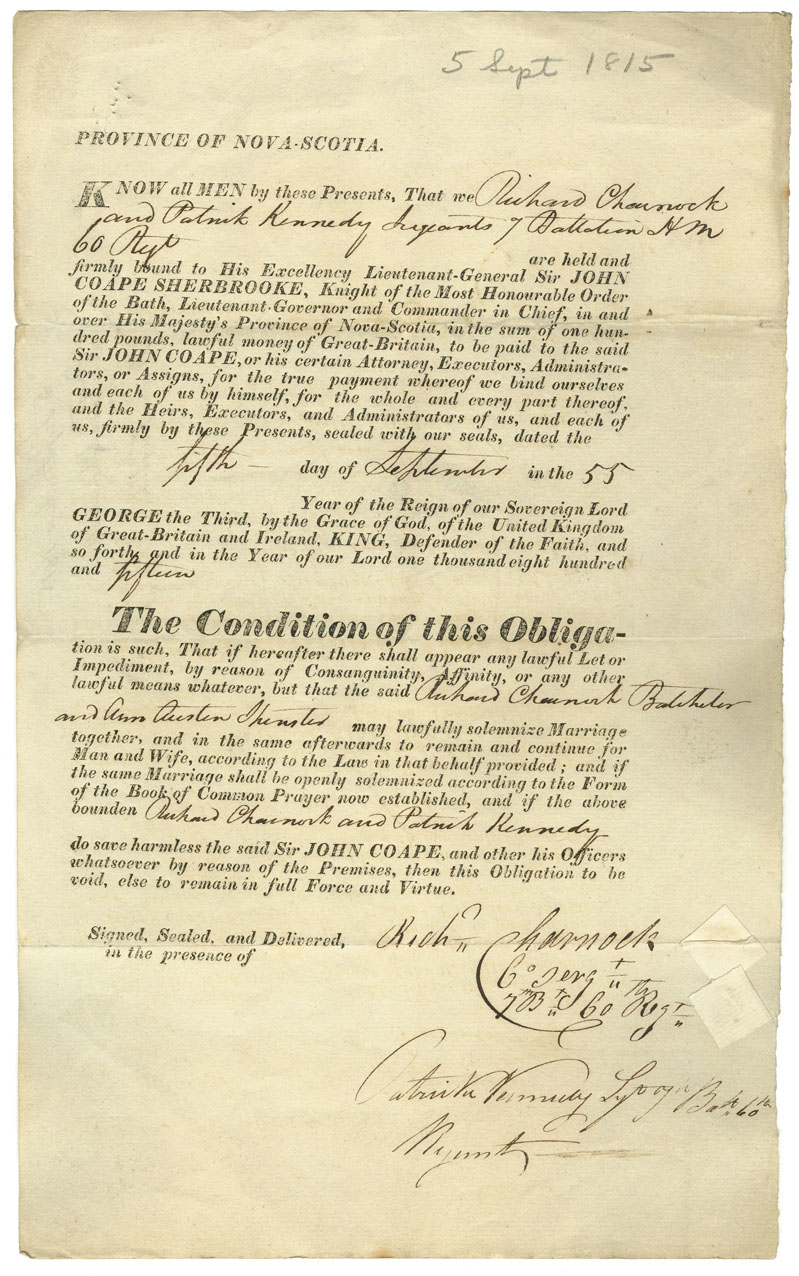 5 Sept 1815
PROVINCE OF NOVA-SCOTIA.
KNOW all MEN by these Presents, That we Richard Charnock
and Patrick Kennedy Sergeants 7 Battalion HM
60 Regt
are held and
firmly bound to His Excellency Lieutenant-General Sir JOHN
COAPE SHERBROOKE, Knight of the Most Honourable Order
of the Bath, Lieutenant-Governor and Commander in Chief, in and
over His Majesty's Province of Nova-Scotia, in the sum of one hun-
dred pounds, lawful money of Great-Britain, to be paid to the said
Sir JOHN COAPE, or his certain Attorney, Executors, Administra-
tors, or Assigns, for the true payment whereof we bind ourselves
and each of us by himself, for the whole and every part thereof,
and the Heirs, Executors, and Administrators of us, and each of
us, firmly by these Presents, sealed with our seals, dated the
fifth day of September in the 55
Year of the Reign of our Sovereign Lord
GEORGE the Third, by the Grace of God, of the United Kingdom
of Great-Britain and Ireland, KING, Defender of the Faith, and
so forth, and in the Year of our Lord one thousand eight hundred
and fifteen
The Condition of this Obliga-
tion is such, That if hereafter there shall appear any lawful Let or
Impediment, by reason of Consanguinity, Affinity, or any other
lawful means whatever, but that the said Richard Charnock Batchelor
and Ann Austen Spinster may lawfully solemnize Marriage
together, and in the same afterwards to remain and continue for
Man and Wife, according to the Law in that behalf provided; and if
the same Marriage shall be openly solemnized according to the Form
of the Book of Common Prayer now established, and if the above
bounden Richard Charnock and Patrick Kennedy
do save harmless the said Sir JOHN COAPE, and other his Officers
whatsoever by reason of the Premises, then this Obligation to be
void, else to remain in full Force and Virtue.
Signed, Sealed, and Delivered,
in the presence of
Richd Charnock
Co Sergt
7 Bt 60th Regt
Patrick Kennedy Batt 60th
Regmt